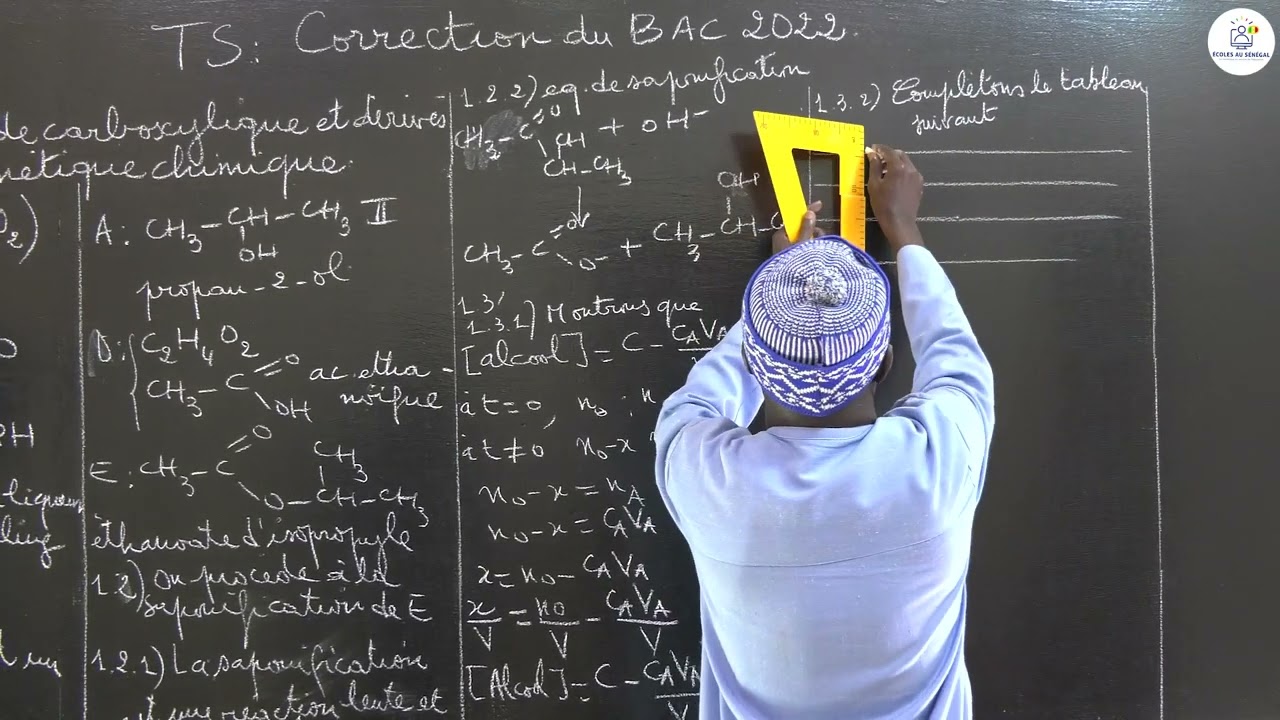 TS: Correction du BAC 2022.
ÉCOLES AU SÉNÉGAL
de carboxylique et dérivés
nétique chimique.
A: CH3-CH-CH3 II
OH
propan-2-ol
D: C2H4O2
CH3-C
O
OH
ac. étha-
noïque
E: CH3-C
O
O-CH-CH3
CH3
éthanoate d'isopropyle
1.2) On procède à la
saponification de E
1.2.1) La saponification
une réaction lente et
1.2.2) eq. de saponification
CH3-C
O
CH + OH-
CH-CH3
CH3-C
O
O- + CH3-CH-C
OH
1.3/
1.3.1) Montrons que
[alcool] = C - CAVA
à t=0, n0 ; n
à t≠0 n0-x
n0-x = nA
n0-x = CAVA
x = n0 - CAVA
x/V = n0/V - CAVA/V
[Alcool] = C - CAVA
V
1.3.2) Complétons le tableau
suivant